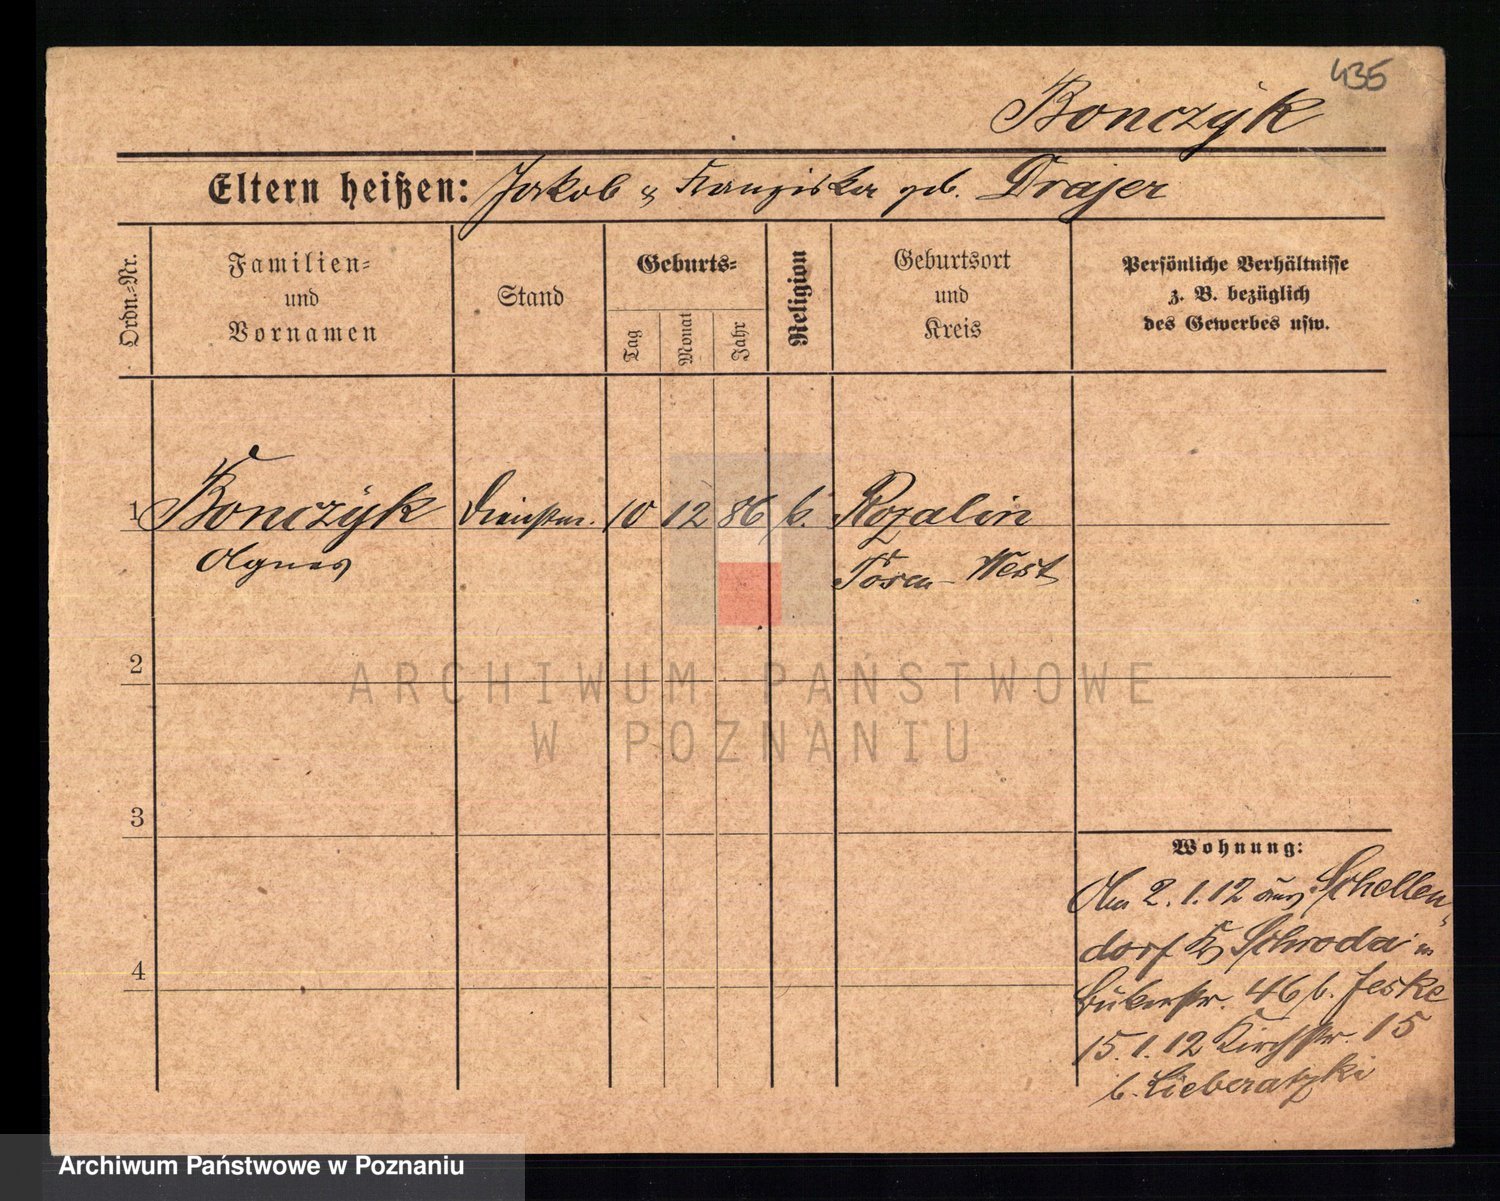 435
Bonczÿk
Eltern heißen: Jakob u Franziska geb. Drajer
Ordn.-Nr.
Familien-
und
Vornamen
Stand
Geburts-
Tag
Monat
Jahr
Religion
Geburtsort
und
Kreis
Persönliche Verhältnisse
z. B. bezüglich
des Gewerbes usw.
1 Bonczÿk 10 12 86 k. Rozalin
Agnes Posen-West
2
3
4
Wohnung:
2.1.12 aus Schellen-
dorf Kr Schroda in
46 b. Jeske
15.1.12 Kirchstr. 15
b. Lieberatzki
ARCHIWUM PAŃSTWOWE
W POZNANIU
Archiwum Państwowe w Poznaniu